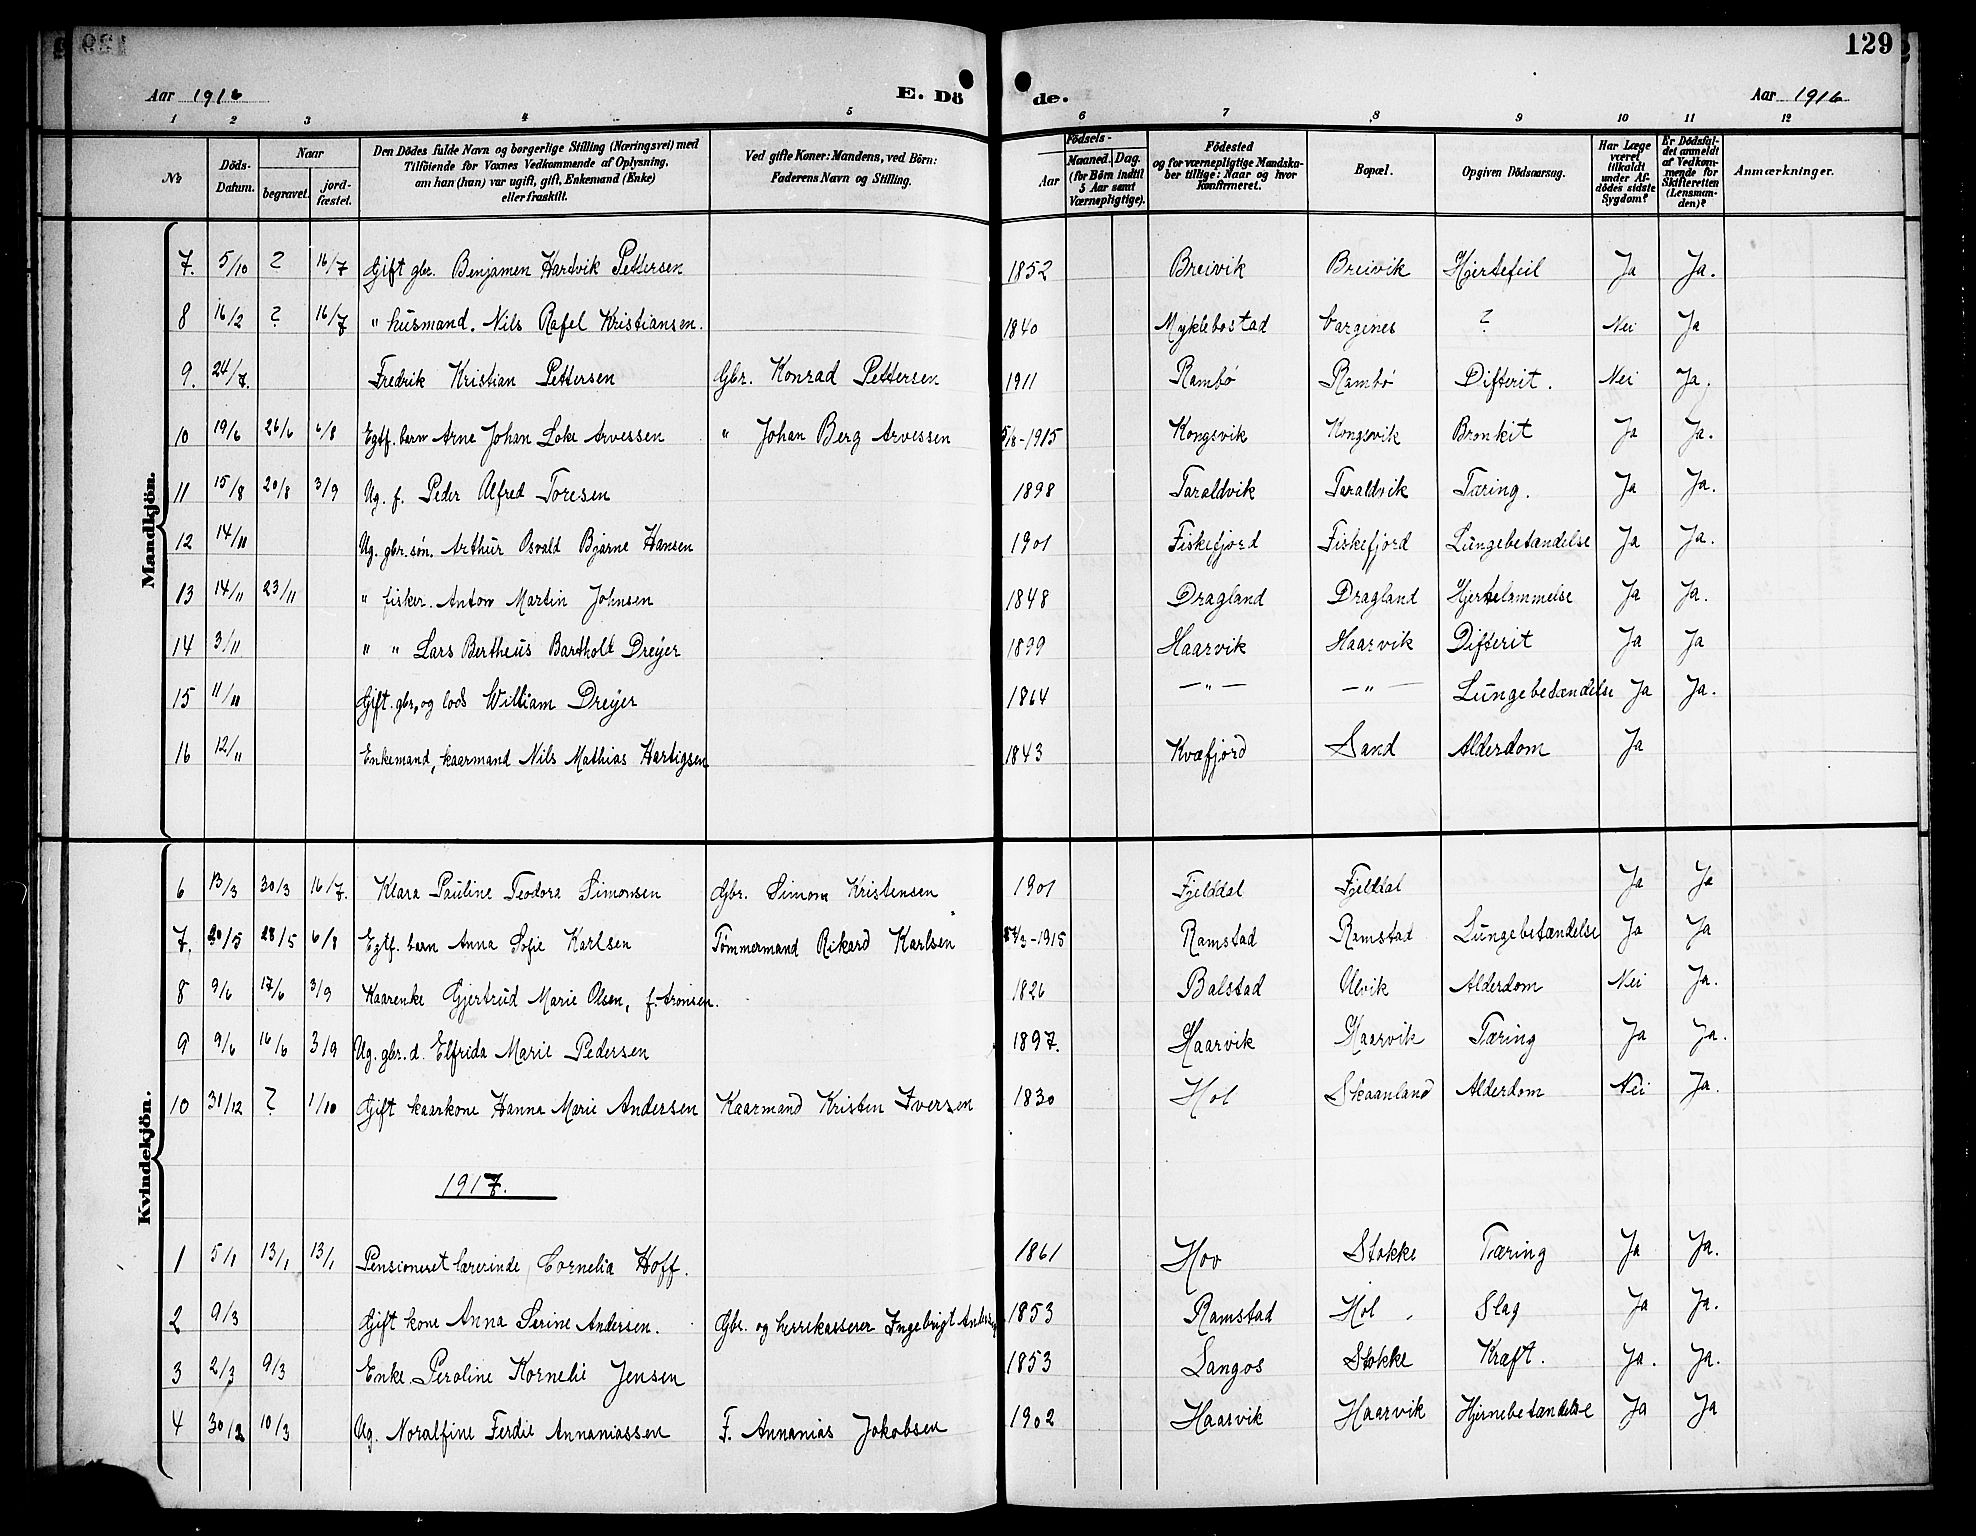 129
Aar 1916 E. Dö de. Aar 1916
1 2 3 4 5 6 7 8 9 10 11 12
№ Döds-Datum. Naar begravet. jord-fæstet. Den Dödes fulde Navn og borgerlige Stilling (Næringsvei) med Tilföiende for Voxnes Vedkommende af Oplysning, om han (hun) var ugift, gift, Enkemand (Enke) eller fraskilt. Ved gifte Koner: Mandens, ved Börn: Faderens Navn og Stilling. Födsels- Aar Maaned. Dag. (for Börn indtil 5 Aar samt Værnepligtige). Födested og for værnepligtige Mandska-ber tillige: Naar og hvor konfirmeret. Bopæl. Opgiven Dödsaarsag. Har Læge været tilkaldt under Af-dödes sidste Sygdom? Er Dödsfal-det anmeldt af Vedkom-mende for Skifteretten (Lensman-den)? Anmærkninger.
Mandkjön.
7. 5/10 ? 16/7 Gift gbr. Benjamen Hartvik Pettersen 1852 Breivik Breivik Hjertefeil Ja Ja.
8 16/2 ? 16/7 " husmand. Nils Rafel Kristiansen. 1840 Myklebostad ? Nei Ja
9. 24/7. Fredrik Kristian Pettersen Gbr. Konrad Pettersen 1911 Rambø Rambø Difterit. Nei Ja.
10 19/6 26/6 6/8 Egtf. barn Arne Johan Loke Arvessen " Johan Berg Arvessen 5/8-1915 Kongsvik Kongsvik Bronkit Ja Ja.
11 15/8 20/8 3/9 Ug. f. Peder Alfred Toresen 1898 Taraldvik Taraldvik Tæring. Ja Ja.
12 14/11 Ug. gbr.søn. Arthur Osvald Bjarne Hansen 1901 Fiskefjord Fiskefjord Lungebetændelse Ja Ja.
13 14/11 23/11 " fisker. Anton Martin Johnsen 1848 Dragland Dragland Hjertelammelse Ja Ja.
14 3/11 " " Lars Bertheus Bartholt Dreyer 1899 Haarvik Haarvik Difterit Ja Ja
15 11/11 Gift. gbr. og lods William Dreyer 1864 —"— —"— Lungebetændelse Ja Ja.
16 12/11 Enkemand, kaarmand Nils Mathias Hartigsen 1843 Kvæfjord Sand Alderdom Ja
Kvindekjön.
6 13/3 30/3 16/7. Klara Pauline Teodora Simonsen Gbr. Simon Kristensen 1901 Fjelddal Fjelddal Ja Ja
7. 20/5 28/5 6/8 Egtf. barn Anna Sofie Karlsen Tømmermand Rikard Karlsen -1915 Ramstad Ramstad Lungebetændelse Ja Ja
8 9/6 17/6 3/9 Kaarenke Gjertrud Marie Olsen, f. Aronsen. 1826 Balstad Ulvik Alderdom Nei Ja.
9 9/6 16/6 3/9 Ug. gbr. d. Elfrida Marie Pedersen 1897. Haarvik Haarvik Tæring Ja Ja.
10 31/12 ? 1/10 Gift kaarkone Hanna Marie Andersen Kaarmand Kristen Iversen 1830 Hol Skaanland Alderdom Nei Ja.
1917.
1 5/1 13/1 13/1 Pensioneret lærerinde, Cornelia Hoff. 1861 Hov Stokke Tæring Ja Ja.
2 9/3 Gift kone Anna Serine Andersen. Gbr. og herrekasserer Ingebrigt Anders 1853 Ramstad Hol Slag Ja Ja.
3 2/3 9/3 Enke Peroline Kornelie Jensen 1853 Sangos Stokke Kræft. Ja. Ja.
4 30/2 10/3 Ug. Noralfine Ferdie Annaniassen F. Annanias Jakobsen 1902 Haarvik Haarvik Hjernebetændelse Ja Ja